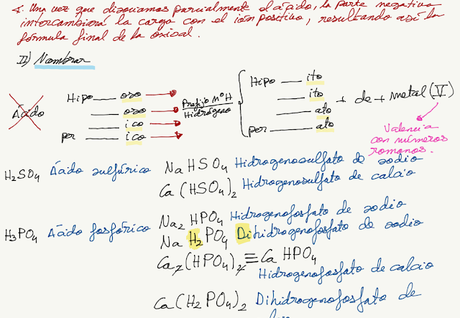 4. Una vez que disociamos parcialmente el ácido, la parte negativa
intercambiará la carga con el ion positivo, resultando así la
fórmula final de la oxisal.
II) Nombrar
Ácido
Hipo oso
oso
ico
per ico
Prefijo nº H
Hidrógeno
Hipo ito
ito
ato
per ato
+ de + metal (V)
Valencia
con números
romanos.
H2SO4 Ácido sulfúrico NaHSO4 Hidrogenosulfato de sodio
Ca(HSO4)2 Hidrogenosulfato de calcio
H3PO4 Ácido fosfórico Na2HPO4 Hidrogenofosfato de sodio
NaH2PO4 Dihidrogenofosfato de sodio
Ca2(HPO4)2 ≡ CaHPO4
Hidrogenofosfato de calcio
Ca(H2PO4)2 Dihidrogenofosfato de